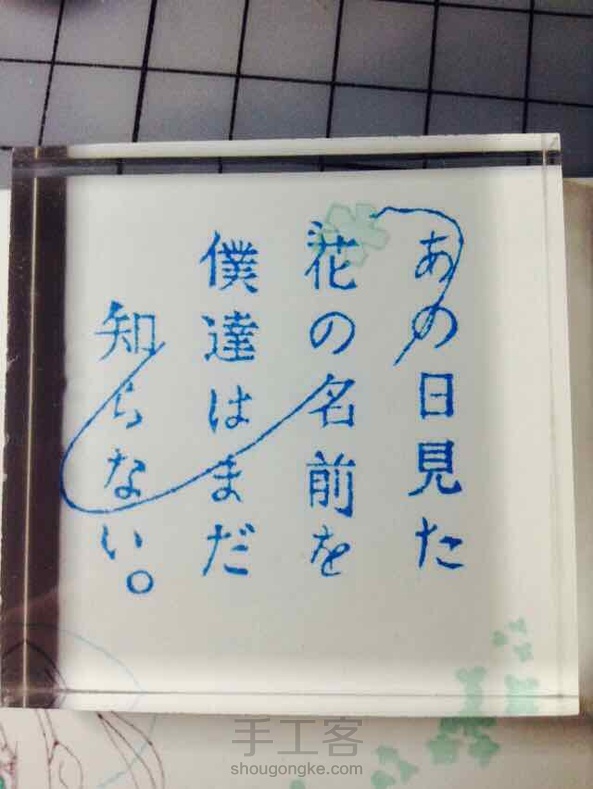 あの日見た
花の名前を
僕達はまだ
知らない。
手工客
shougongke.com